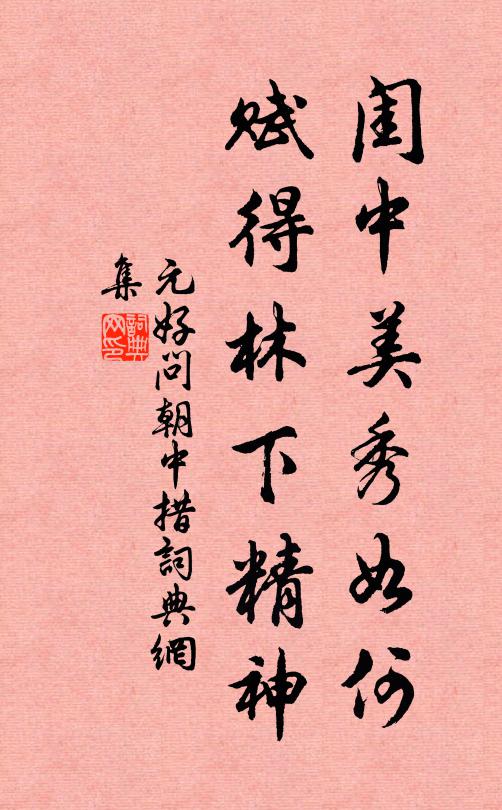 闺中美秀如何
赋得林下精神
元好问朝中措詞典網
集
詞典
网印